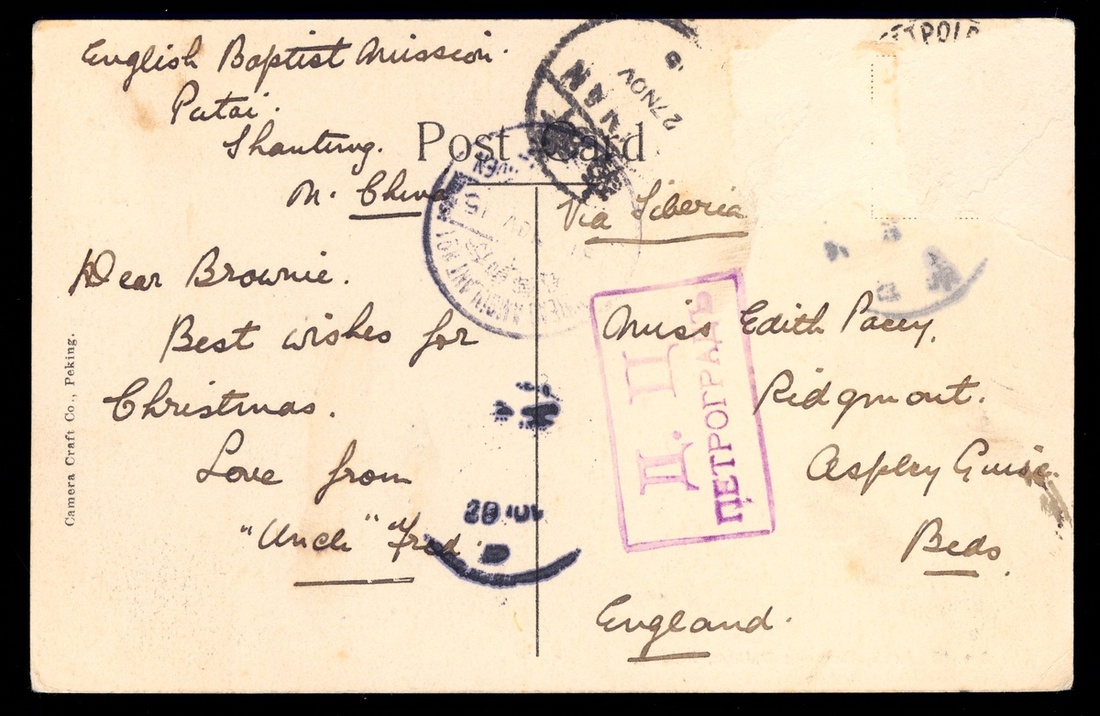 English Baptist Mission.
Putai.
Shantung.
N. China
Post Card
27 NOV
Via Siberia
Dear Brownie.
Best wishes for
Christmas.
Love from
"Uncle" "Fred".
Miss Edith Pacey,
Ridgmont.
Aspley Guise.
Beds.
England.
Д. Ц.
ПЕТРОГРАДЪ
Camera Craft Co., Peking.